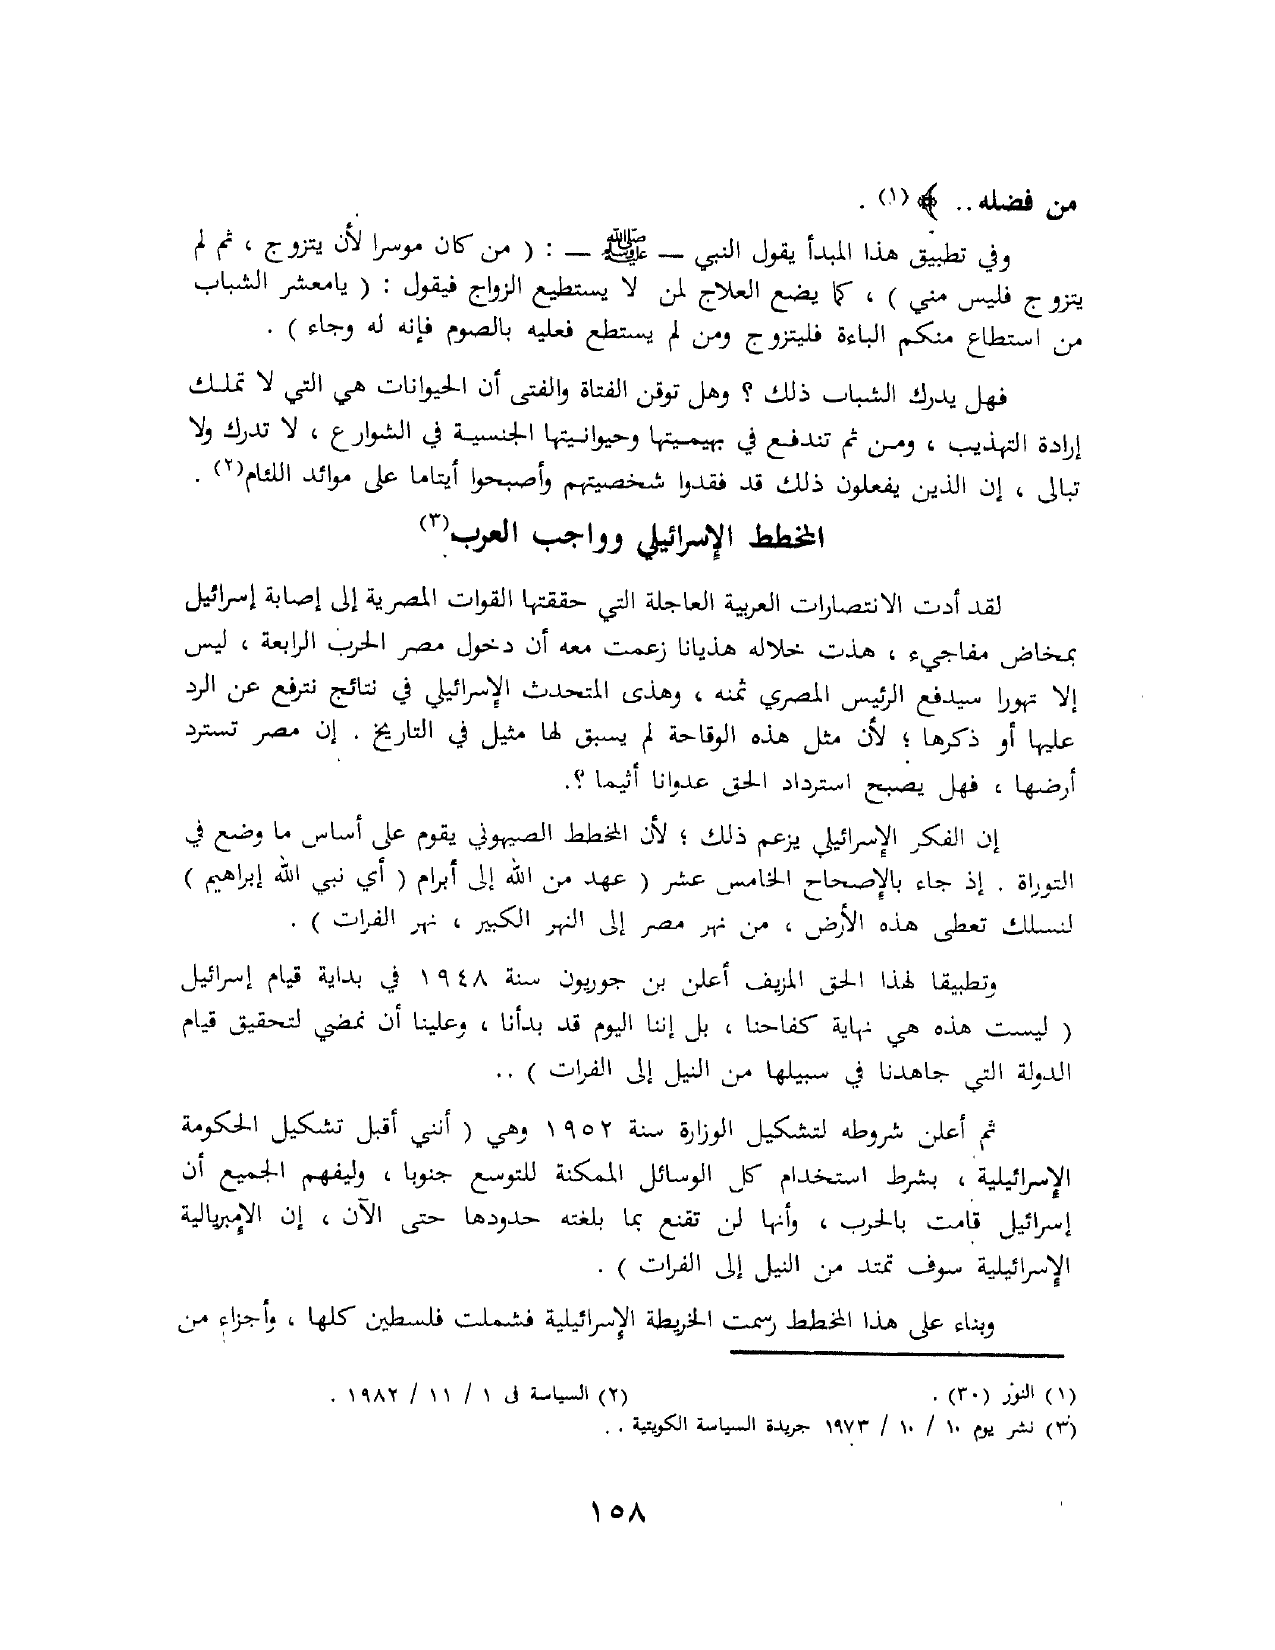 من فضله .. ﴾ (١) .
وفي تطبيق هذا المبدأ يقول النبي — ﷺ — : ( من كان موسرا لأن يتزوج ، ثم لم
يتزوج فليس مني ) ، كما يضع العلاج لمن لا يستطيع الزواج فيقول : ( يامعشر الشباب
من استطاع منكم الباءة فليتزوج ومن لم يستطع فعليه بالصوم فإنه له وجاء ) .
فهل يدرك الشباب ذلك ؟ وهل توقن الفتاة والفتى أن الحيوانات هي التي لا تملك
إرادة التهذيب ، ومن ثم تندفع في بهيميتها وحيوانيتها الجنسية في الشوارع ، لا تدرك ولا
تبالى ، إن الذين يفعلون ذلك قد فقدوا شخصيتهم وأصبحوا أيتاما على موائد اللئام(٢) .
المخطط الإسرائيلي وواجب العرب(٣)
لقد أدت الانتصارات العربية العاجلة التي حققتها القوات المصرية إلى إصابة إسرائيل
بمخاض مفاجيء ، هذت خلاله هذيانا زعمت معه أن دخول مصر الحرب الرابعة ، ليس
إلا تهورا سيدفع الرئيس المصري ثمنه ، وهذى المتحدث الإسرائيلي في نتائج نترفع عن الرد
عليها أو ذكرها ؛ لأن مثل هذه الوقاحة لم يسبق لها مثيل في التاريخ . إن مصر تسترد
أرضها ، فهل يصبح استرداد الحق عدوانا أثيما ؟.
إن الفكر الإسرائيلي يزعم ذلك ؛ لأن المخطط الصهيوني يقوم على أساس ما وضع في
التوراة . إذ جاء بالإصحاح الخامس عشر ( عهد من الله إلى أبرام ( أي نبي الله إبراهيم )
لنسلك تعطى هذه الأرض ، من نهر مصر إلى النهر الكبير ، نهر الفرات ) .
وتطبيقا لهذا الحق المزيف أعلن بن جوريون سنة ١٩٤٨ في بداية قيام إسرائيل
( ليست هذه هي نهاية كفاحنا ، بل إننا اليوم قد بدأنا ، وعلينا أن نمضي لتحقيق قيام
الدولة التي جاهدنا في سبيلها من النيل إلى الفرات ) ..
ثم أعلن شروطه لتشكيل الوزارة سنة ١٩٥٢ وهي ( أنني أقبل تشكيل الحكومة
الإسرائيلية ، بشرط استخدام كل الوسائل الممكنة للتوسع جنوبا ، وليفهم الجميع أن
إسرائيل قامت بالحرب ، وأنها لن تقنع بما بلغته حدودها حتى الآن ، إن الامبريالية
الإسرائيلية سوف تمتد من النيل إلى الفرات ) .
وبناء على هذا المخطط رسمت الخريطة الإسرائيلية فشملت فلسطين كلها ، وأجزاء من
(١) النور (٣٠) . (٢) السياسة فى ١ / ١١ / ١٩٨٢ .
(٣) نشر يوم ١٠ / ١٠ / ١٩٧٣ جريدة السياسة الكويتية . .
١٥٨